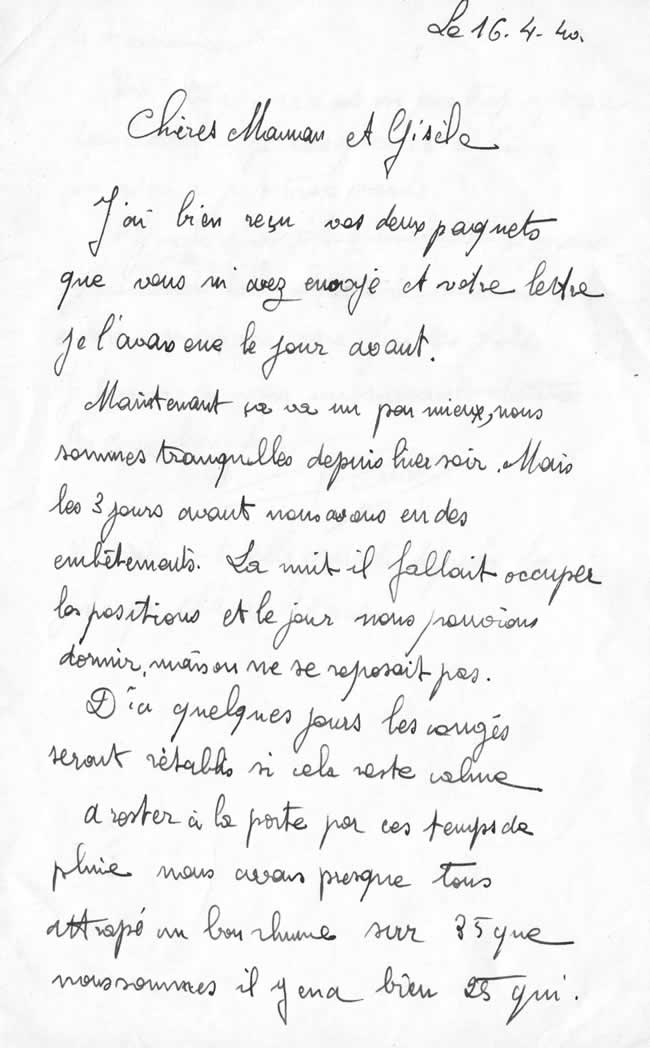 Le 16-4-40.
Chères Maman et Gisèle
J'ai bien reçu vos deux paquets
que vous m'avez envoyé et votre lettre
je l'avais eue le jour avant.
Maintenant ça va un peu mieux, nous
sommes tranquilles depuis hier soir. Mais
les 3 jours avant nous avons eu des
embêtements. La nuit il fallait occuper
les positions et le jour nous pouvions
dormir, mais on ne se reposait pas.
D'ici quelques jours les congés
seront rétablis si cela reste calme
A rester à la porte par ces temps de
pluie nous avons presque tous
attrapé un bon rhume sur 35 que
nous sommes il y en a bien 25 qui.